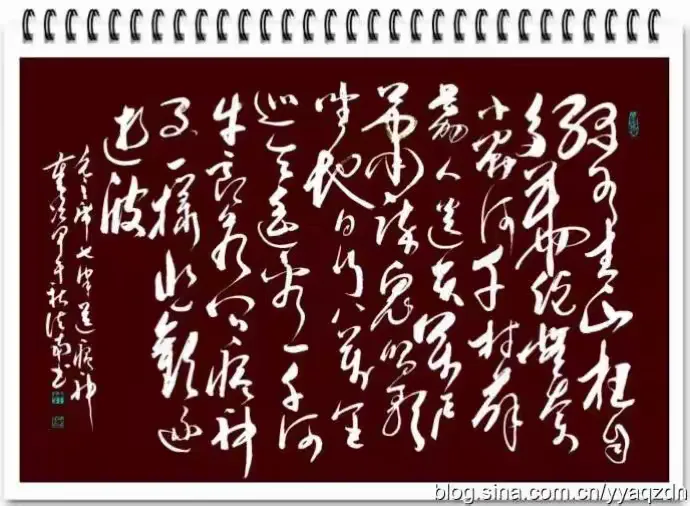 绿水青山枉自
多華佗無奈
小蟲何千村薜
荔人遗矢萬户
萧疏鬼唱歌
坐地日行八萬里
巡天遥看一千河
牛郎欲问瘟神
事一樣悲歡逐
逝波
毛主席七律送瘟神
甲午秋书
blog.sina.com.cn/yyaqzdn